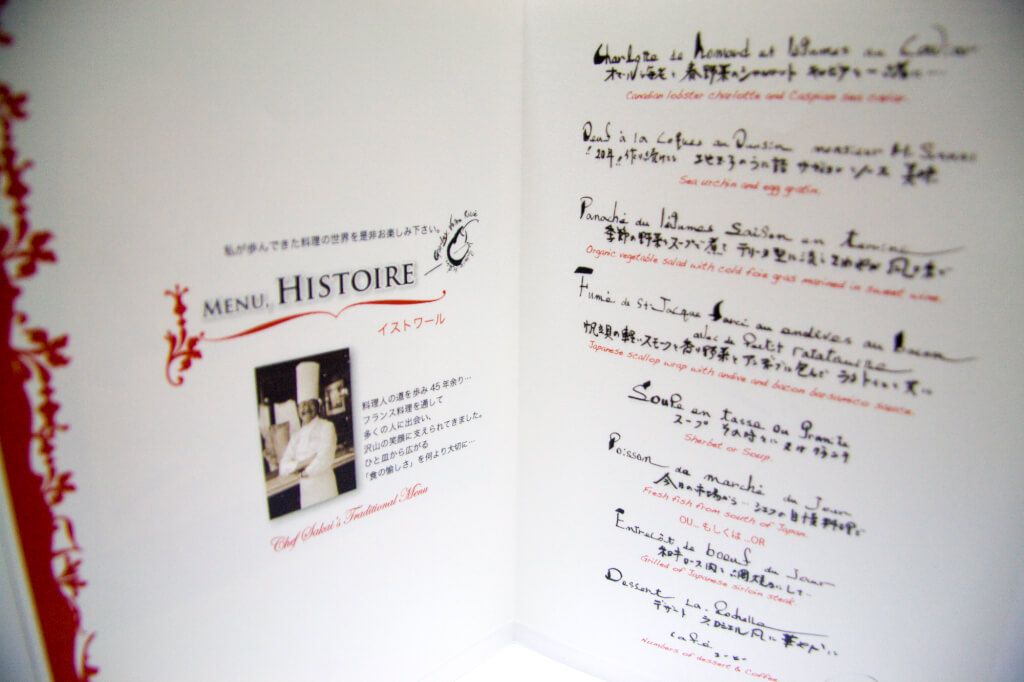 私が歩んできた料理の世界を是非お楽しみ下さい。
MENU, HISTOIRE
イストワール
料理人の道を歩み45年余り…
フランス料理を通して
多くの人に出会い、
沢山の笑顔に支えられてきました。
ひと皿から広がる
「食の愉しさ」を何より大切に…
Chef Sakai's Traditional Menu
Charlotte de homard et légumes au Caviar
オマール海老と春野菜のシャルロット キャビアを
Canadian lobster charlotte and Caspian sea caviar.
à la au monsieur
20年 作り続けた ソース 美味
Sea urchin and egg gratin.
Panaché du légumes saison en terrine
季節の野菜をスープで煮て テリーヌ型に
Organic vegetable salad with cold foie gras marined in sweet wine.
Fumé de St-Jacque au endives au bacon
avec de Petit ratatouille
帆立貝の軽いスモークと香り野菜と
Japanese scallop wrap with andive and bacon barsamico sauce.
Soupe en tasse ou granite
スープ その時々に
Sherbet or Soup.
Poisson du marché du Jour
今日の市場から… シェフの自慢料理で
Fresh fish from south of Japan.
OU... もしくは ...OR
Entrecôt de boeuf du Jour
和牛ロース肉を網焼きにして…
Grilled of Japanese sirloin steak.
Dessert La Rochelle
デザート ラ・ロシェル風に華やかに
café コーヒー
Numbers of dessert & Coffee